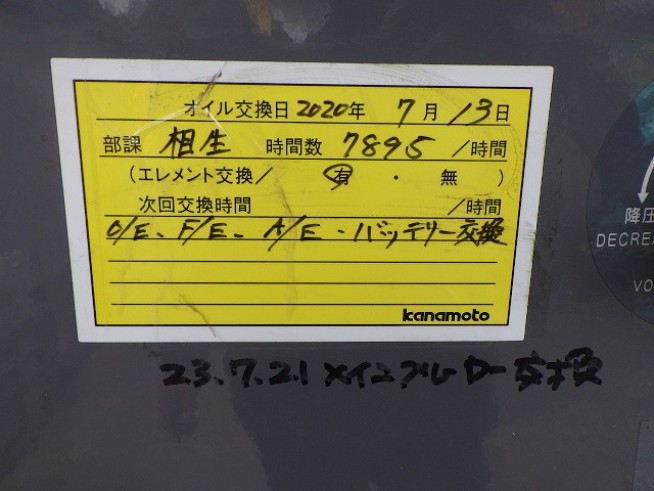 オイル交換日 2020年 7月 13日
部課 相生 時間数 7895 /時間
(エレメント交換/ 有 ・ 無 )
次回交換時間 /時間
O/E、F/E、A/E・バッテリー交換
kanamoto
23.7.21 メインブレーカー交換
降圧
DECREA
VO